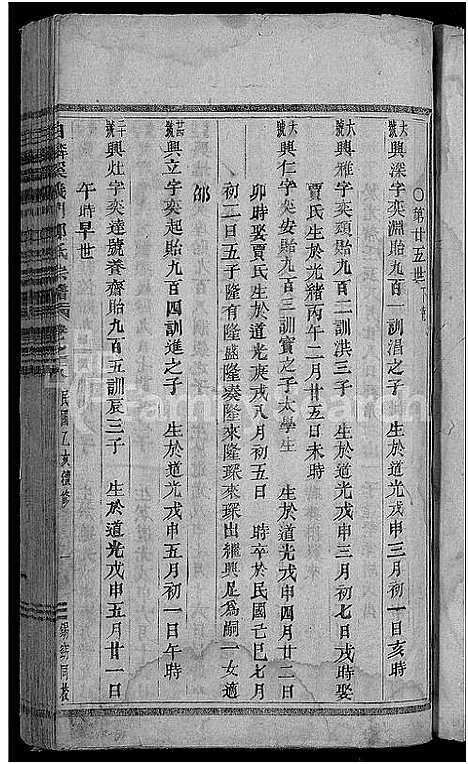 ○第廿五世
大號興深字奕淵貽九百一訓湻之子 生於道光戊申三月初一日亥時
大號興雅字奕類貽九百二訓洪三子 生於道光戊申三月初七日戌時娶
賈氏生於光緒丙午二月廿五日未時
大興仁字奕安貽九百三訓寶之子太學生 生於道光戊申四月廿二日
卯時娶賈氏生於道光庚戌八月初五日 時卒於民國七月
初二日五子隆有隆盛隆奏隆來隆琛來琛出繼興足為嗣一女適
鄒
號興立字奕起貽九百四訓進之子 生於道光戊申五月初一日午時
二十號興灶字奕達號養齋貽九百五訓辰三子 生於道光戊申五月廿一日
午時早世
氏宗譜
民國乙亥續修 一